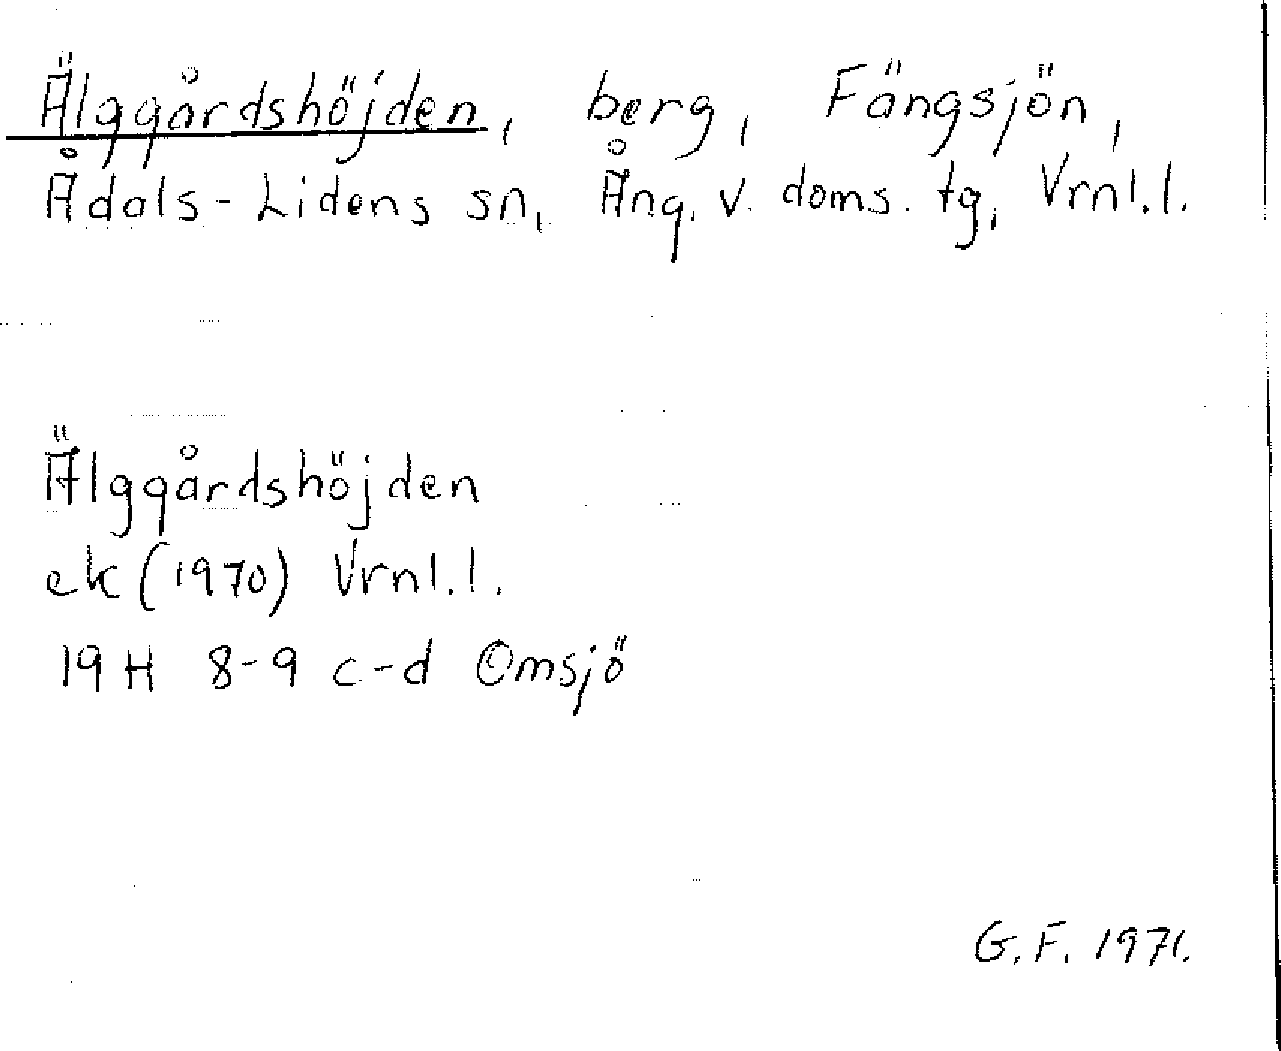 Älggårdshöjden, berg, Fängsjön,
Ådals-Lidens sn, Ång. v. doms. tg, Vrnl.l.
Älggårdshöjden
ek (1970) Vrnl.l.
19 H 8-9 c-d Omsjö
G.F. 1971.